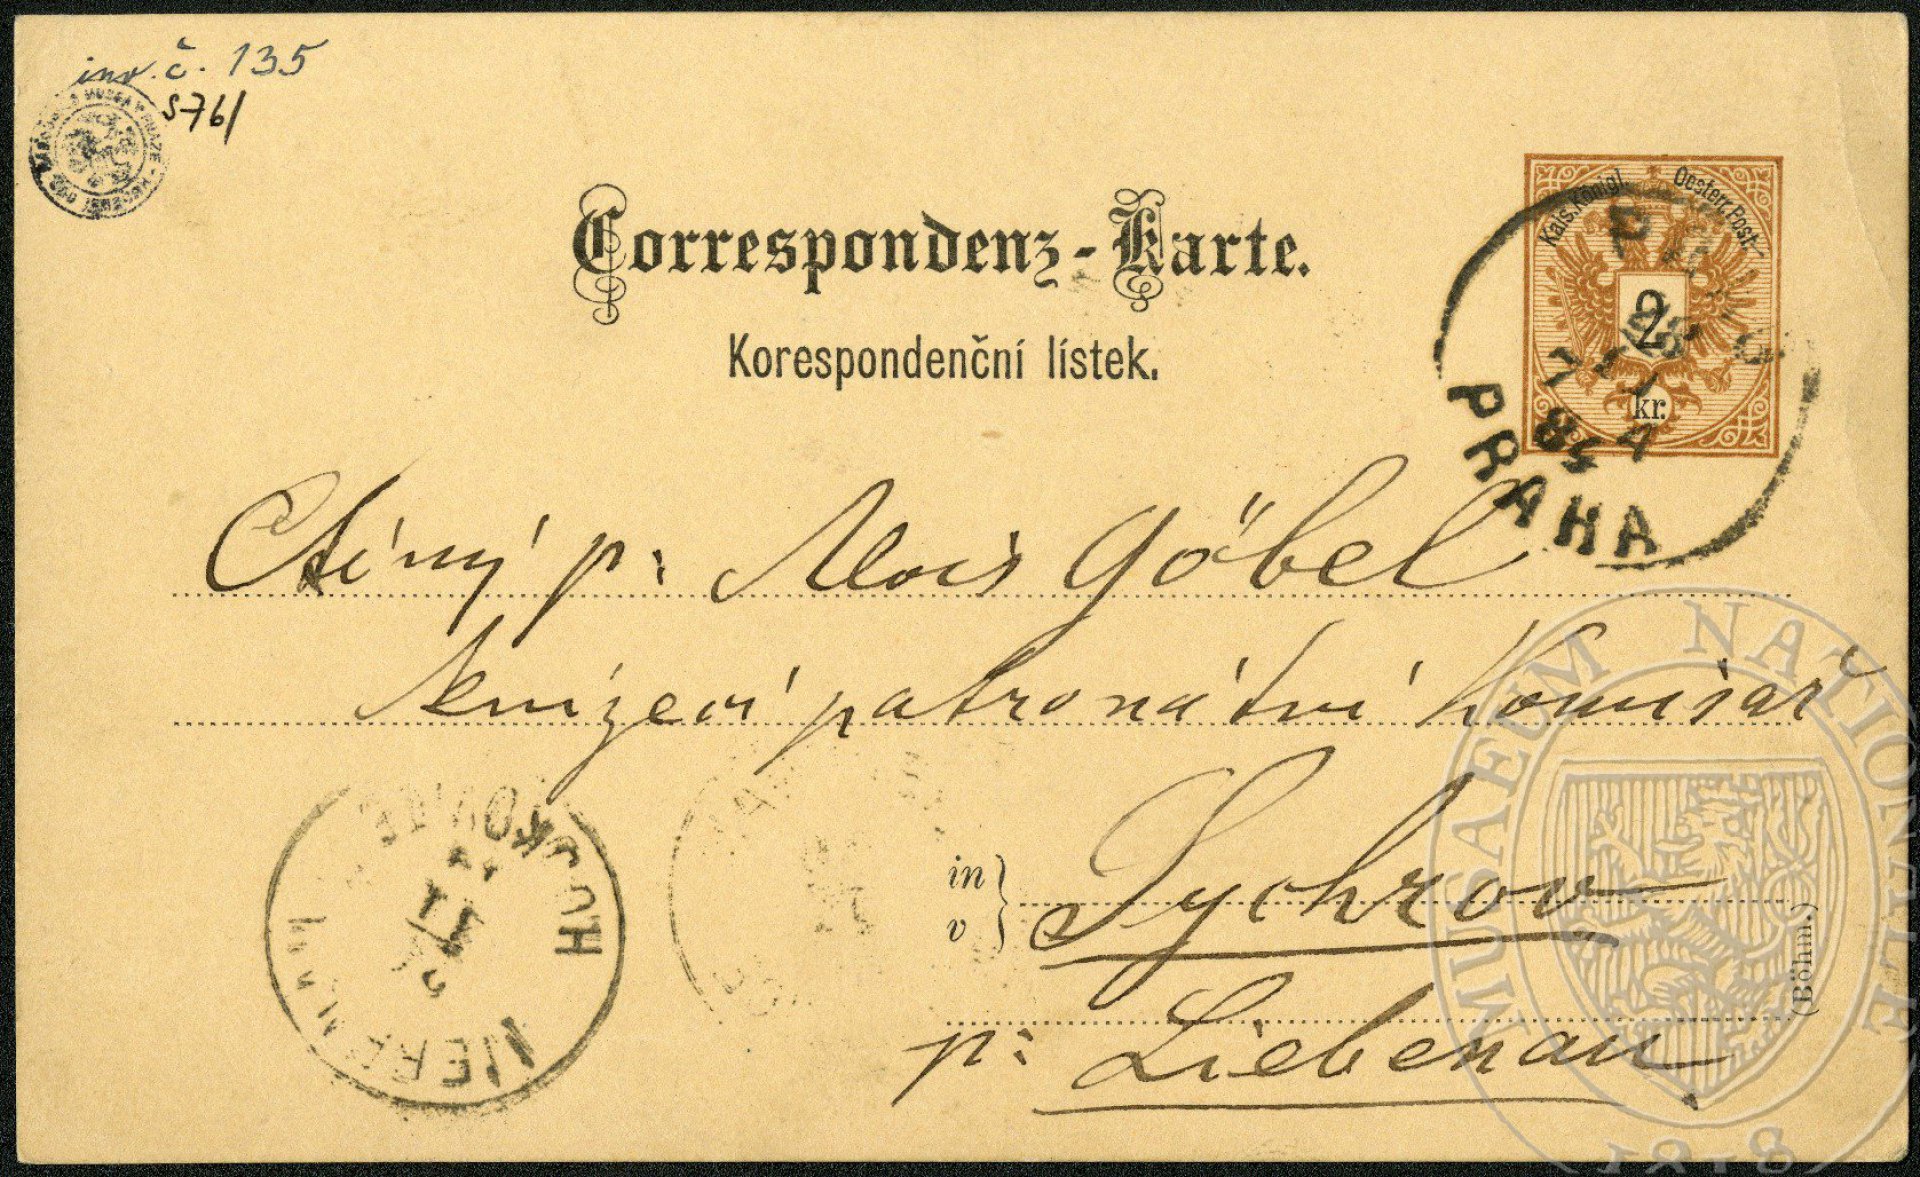 inv. č. 135
S76/
Correspondenz-Karte.
Korespondenční lístek.
Kais. Königl. Oesterr. Post
2
kr.
PRAHA
Ctěný p: Alois Göbel
řenízecí patronátní komisař
in
v
Sychrov
(Böhm.)
p: Liebenau
MUSAEUM NATIONALE
1818